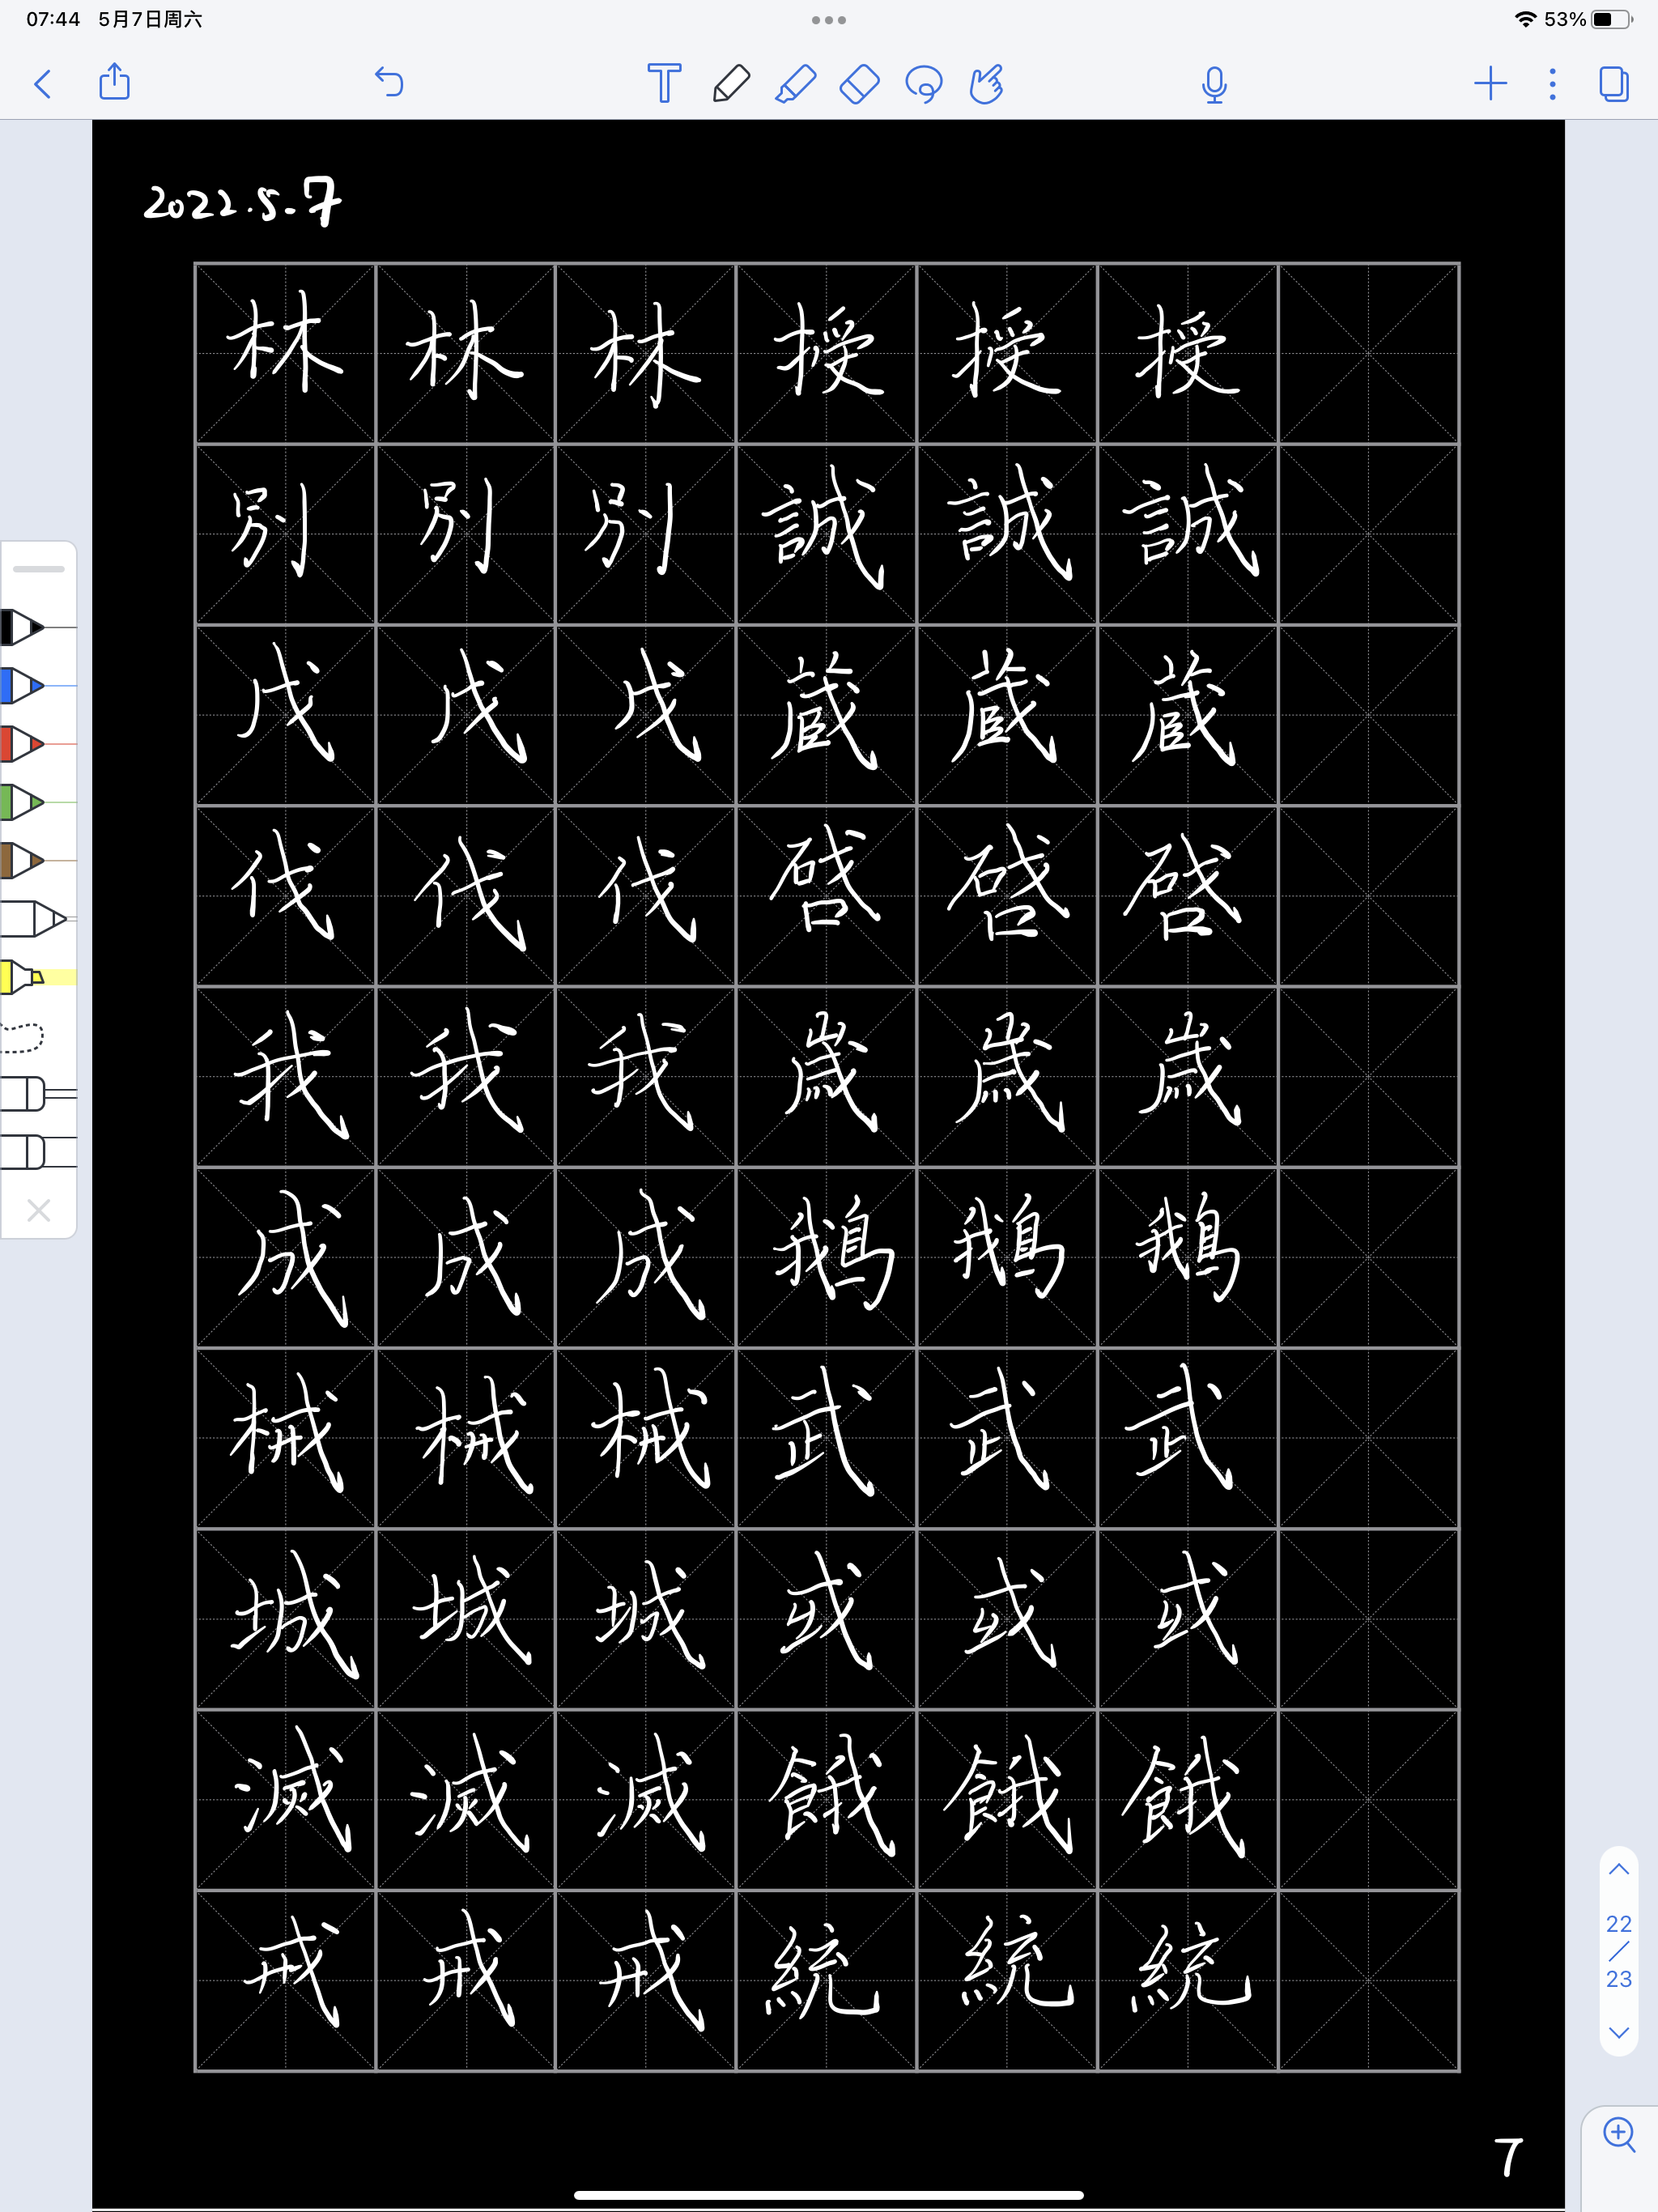 07:44 5月7日周六
53%
2022.5.7
林林林授授授
別別別誠誠誠
戊戊戊蔵蔵蔵
伐伐伐啓啓啓
我我我歳歳歳
成成成鵝鵝鵝
械械械武武武
城城城或或或
滅滅滅餓餓餓
戒戒戒統統統
22
23
7